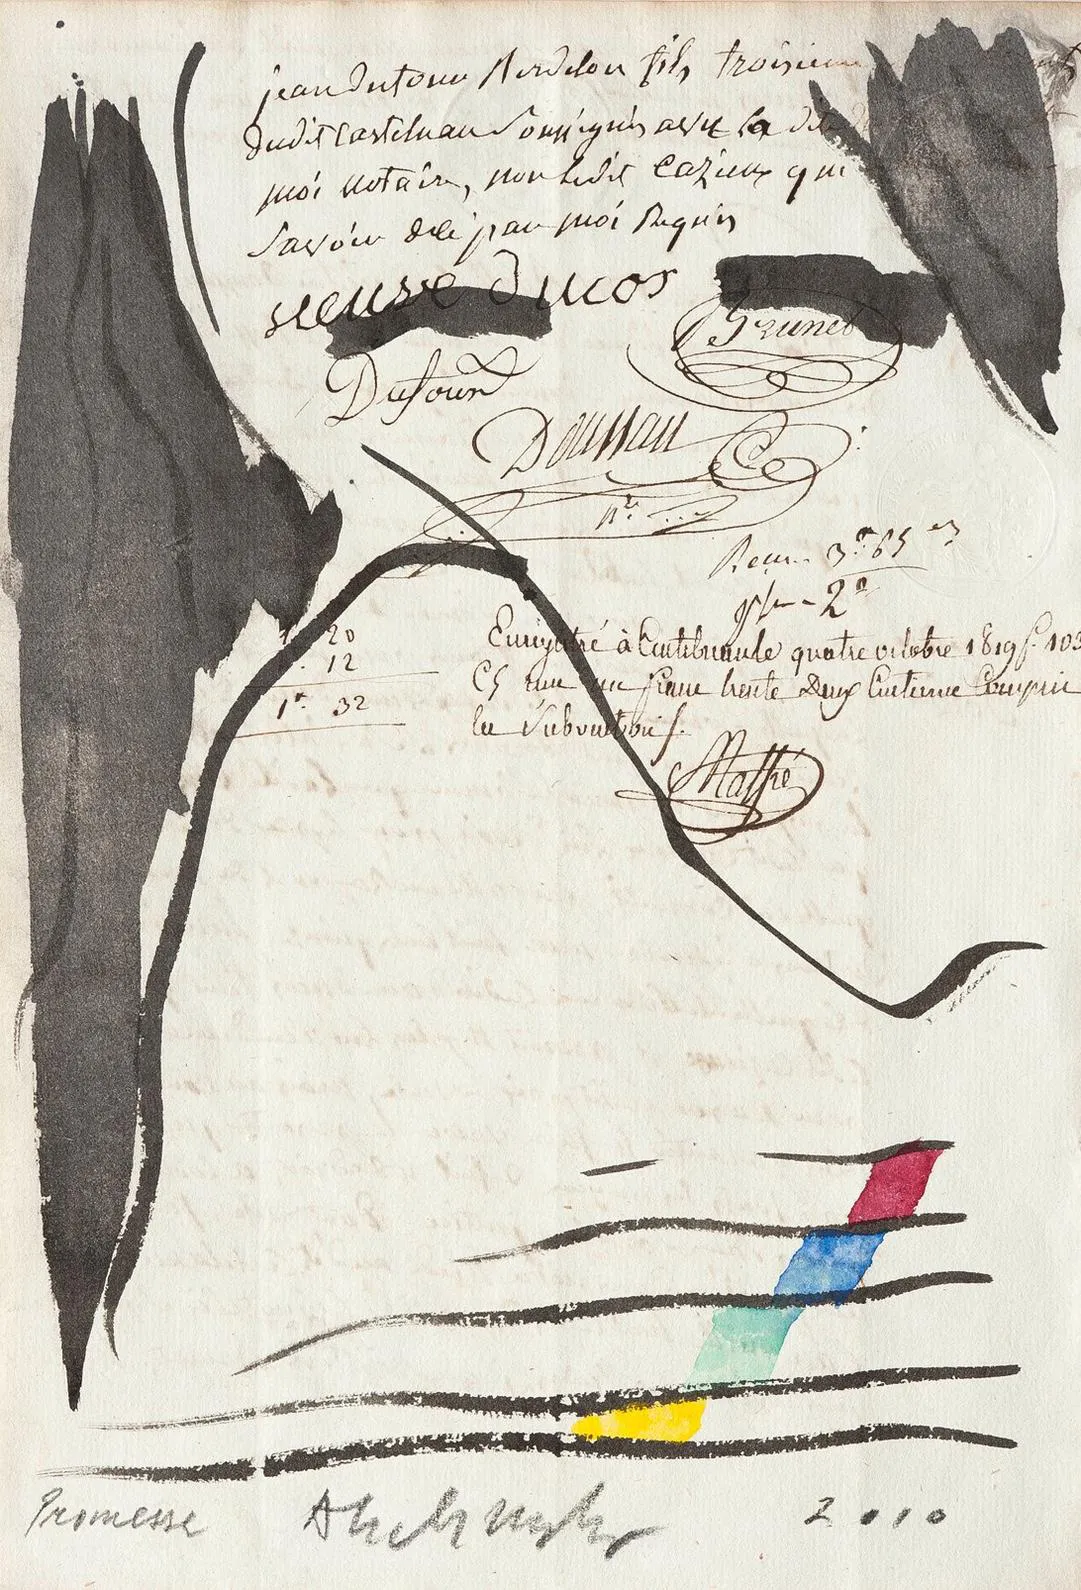 jean dutour Bordelou fils troisieme
dudit Castelnau Soussignés avec la dite
moi notaire, non ledit Cazieux qui
Savoir de ce par moi Requis
veuve ducos
Brunet
Dufour
Doussau
nre
3 f 65
2
20
12
1 f 32
Enregistré à Castelnau le quatre octobre 1819 f 103
C5 un franc trente Deux Centimes Compris
la Subvention
Mathé
Promesse
2010